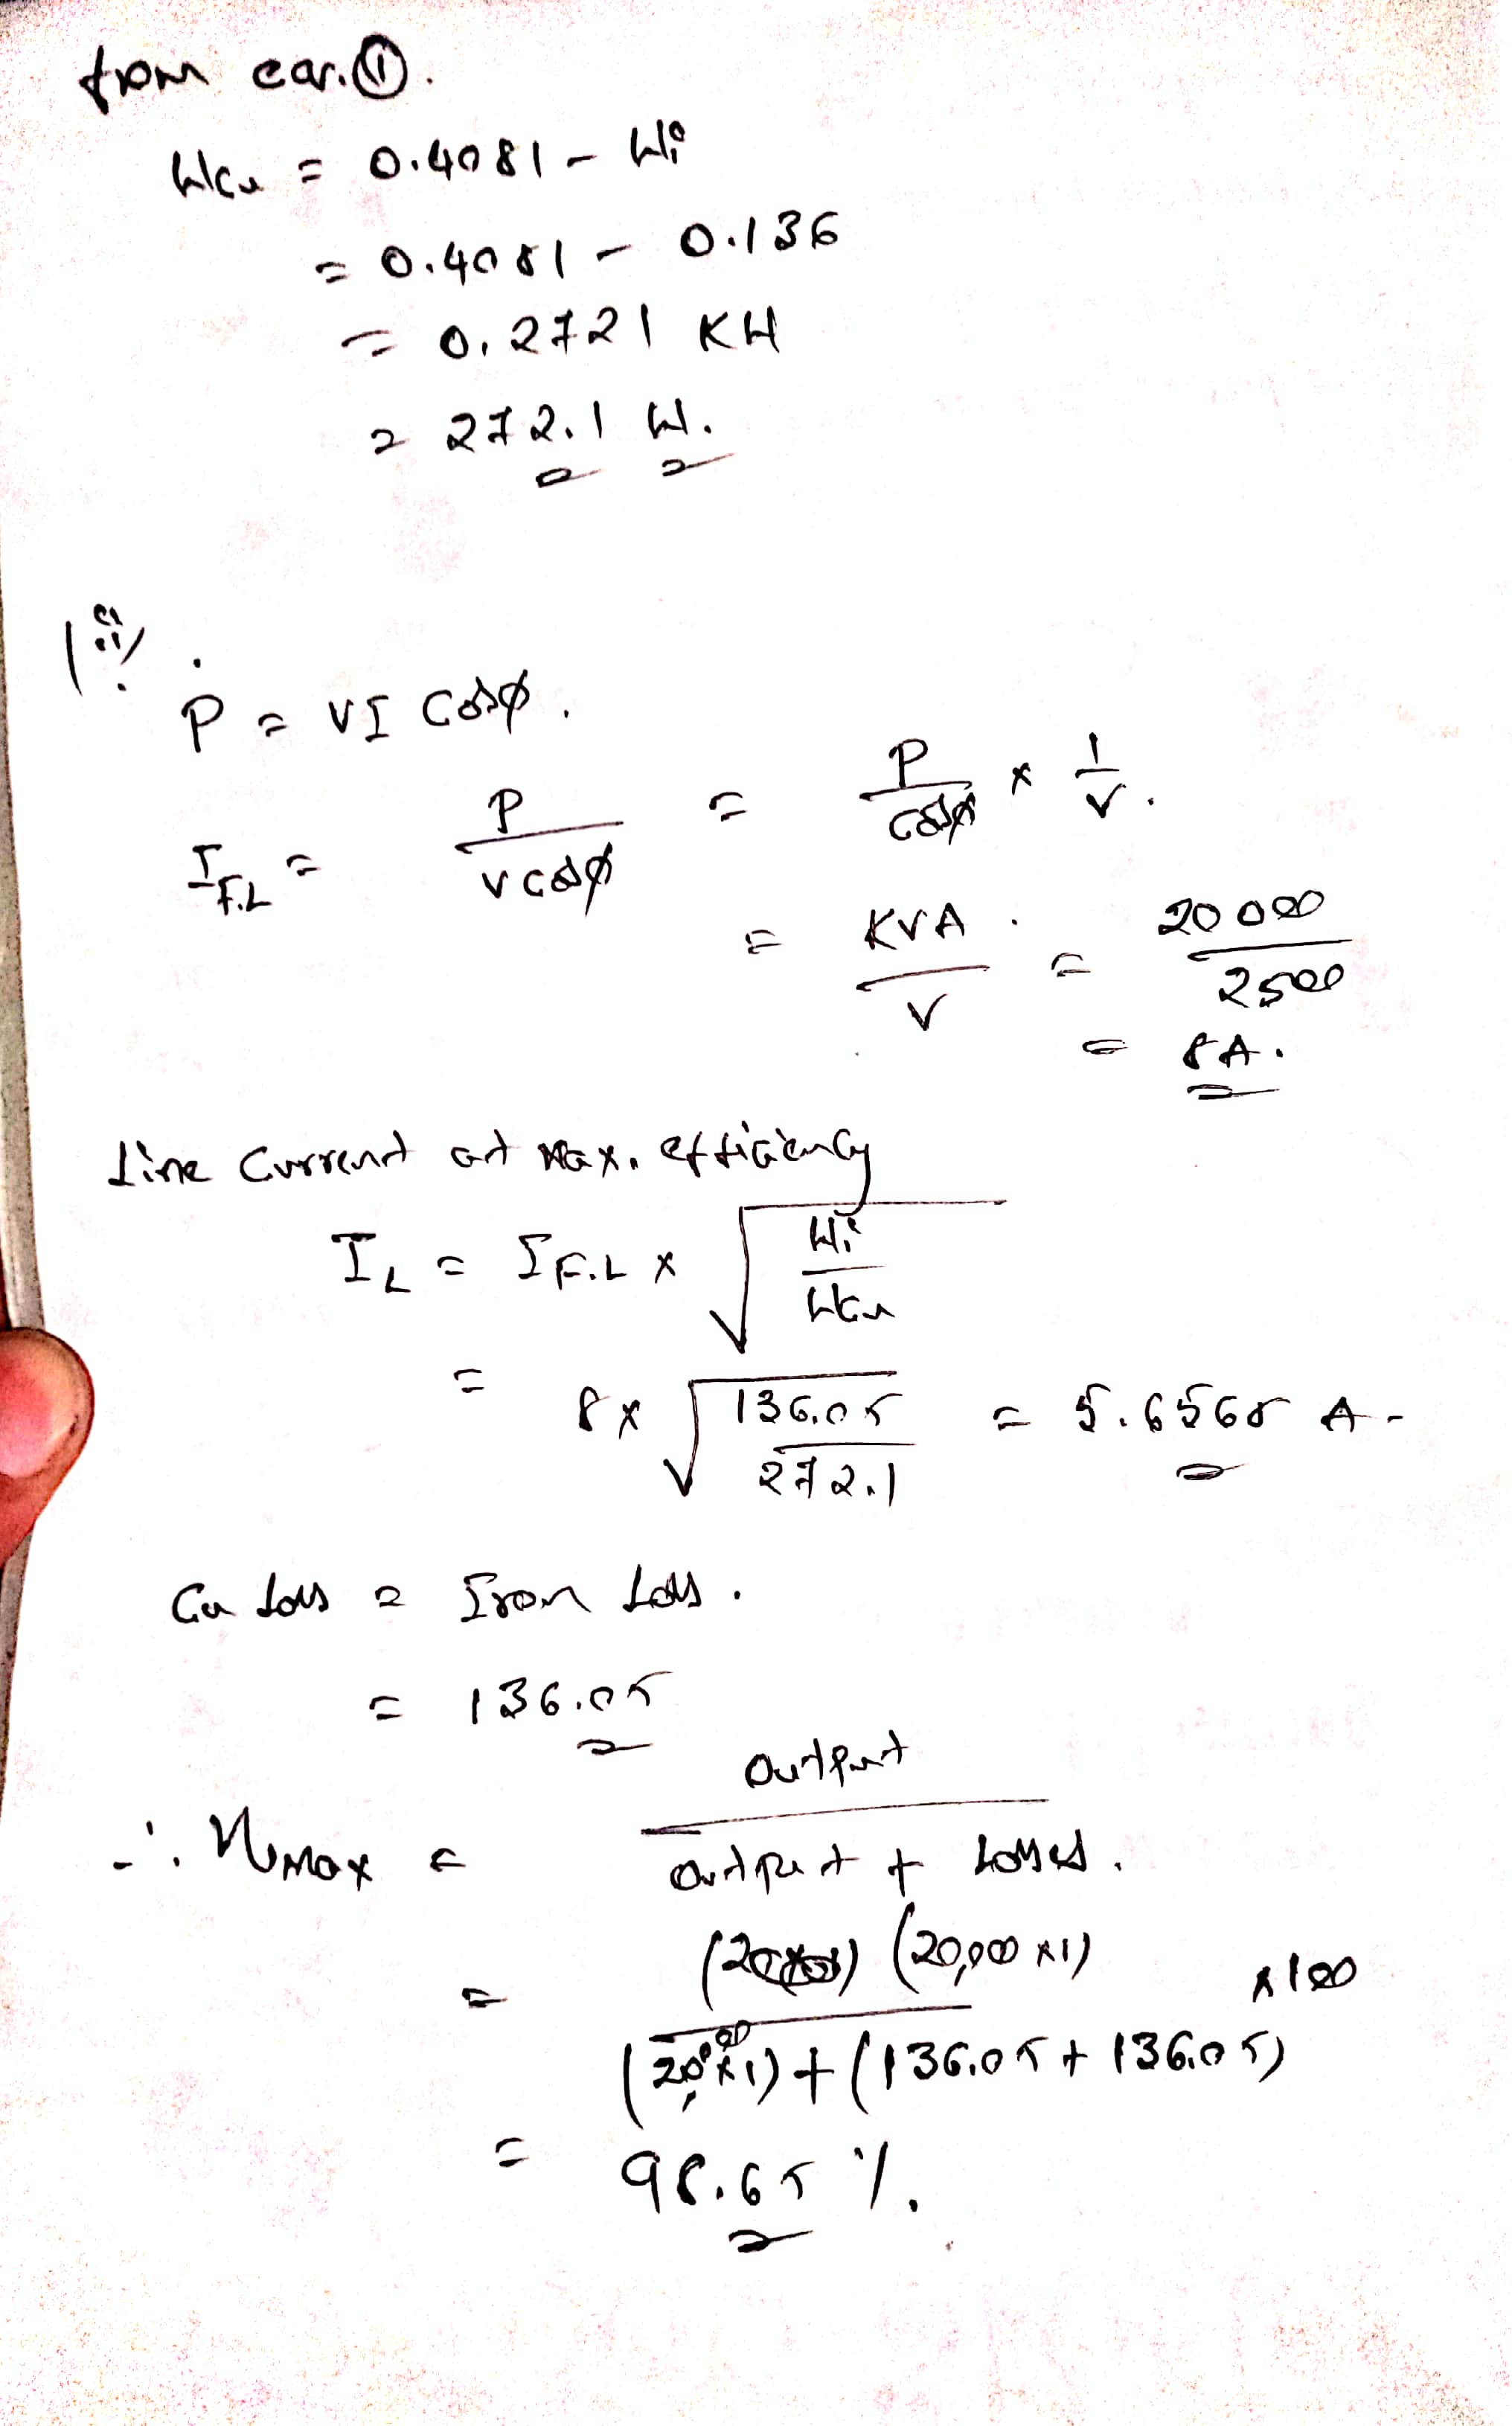 from eqn. ①.
Wcu = 0.4081 - Wi
= 0.4081 - 0.136
= 0.2721 KW
= 272.1 W.
iii) .
P = VI Cosφ .
I F.L = P / V cosφ = P / cosφ × 1 / V .
= KVA / V = 20000 / 2500
= 8A .
Line Current at Max. efficiency
I L = I F.L × √ Wi / Wcu
= 8 × √ 136.05 / 272.1 = 5.6568 A -
Cu Loss = Iron Loss .
= 136.05
∴ ηmax = Output / Output + Losses .
= (20,000 × 1) / (20,000 × 1) + (136.05 + 136.05) × 100
= 98.65 %.